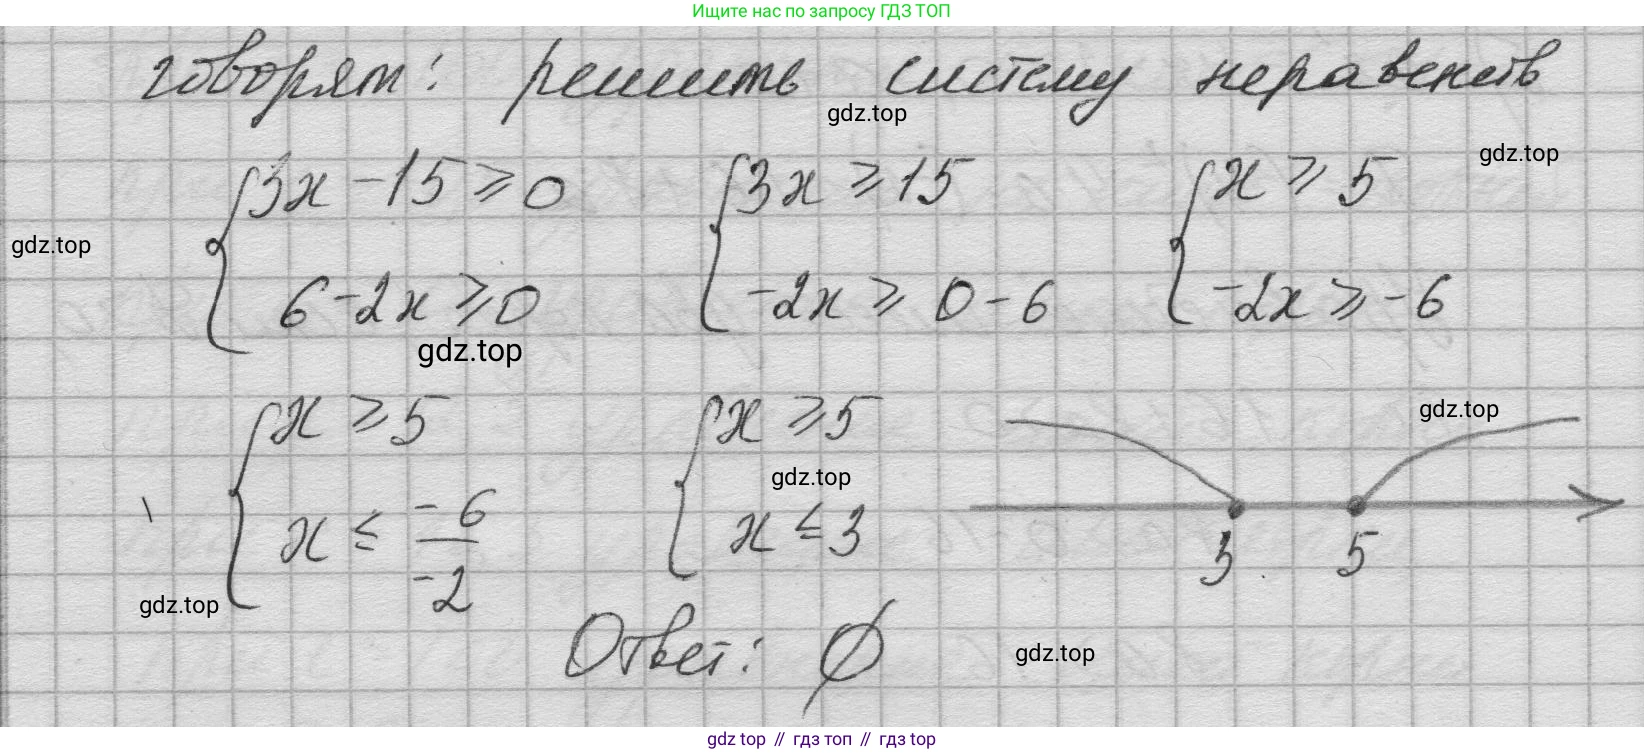 Ищите нас по запросу ГДЗ ТОП
говорят: решить систему неравенств
gdz.top
gdz.top
{3x - 15 ≥ 0 {3x ≥ 15 {x ≥ 5
gdz.top
6 - 2x ≥ 0 -2x ≥ 0 - 6 -2x ≥ -6
gdz.top
{x ≥ 5 {x ≥ 5
gdz.top
gdz.top
x ≤ -6/-2 x ≤ 3
3 5
gdz.top
Ответ: ∅
gdz.top
gdz top // гдз топ // гдз top